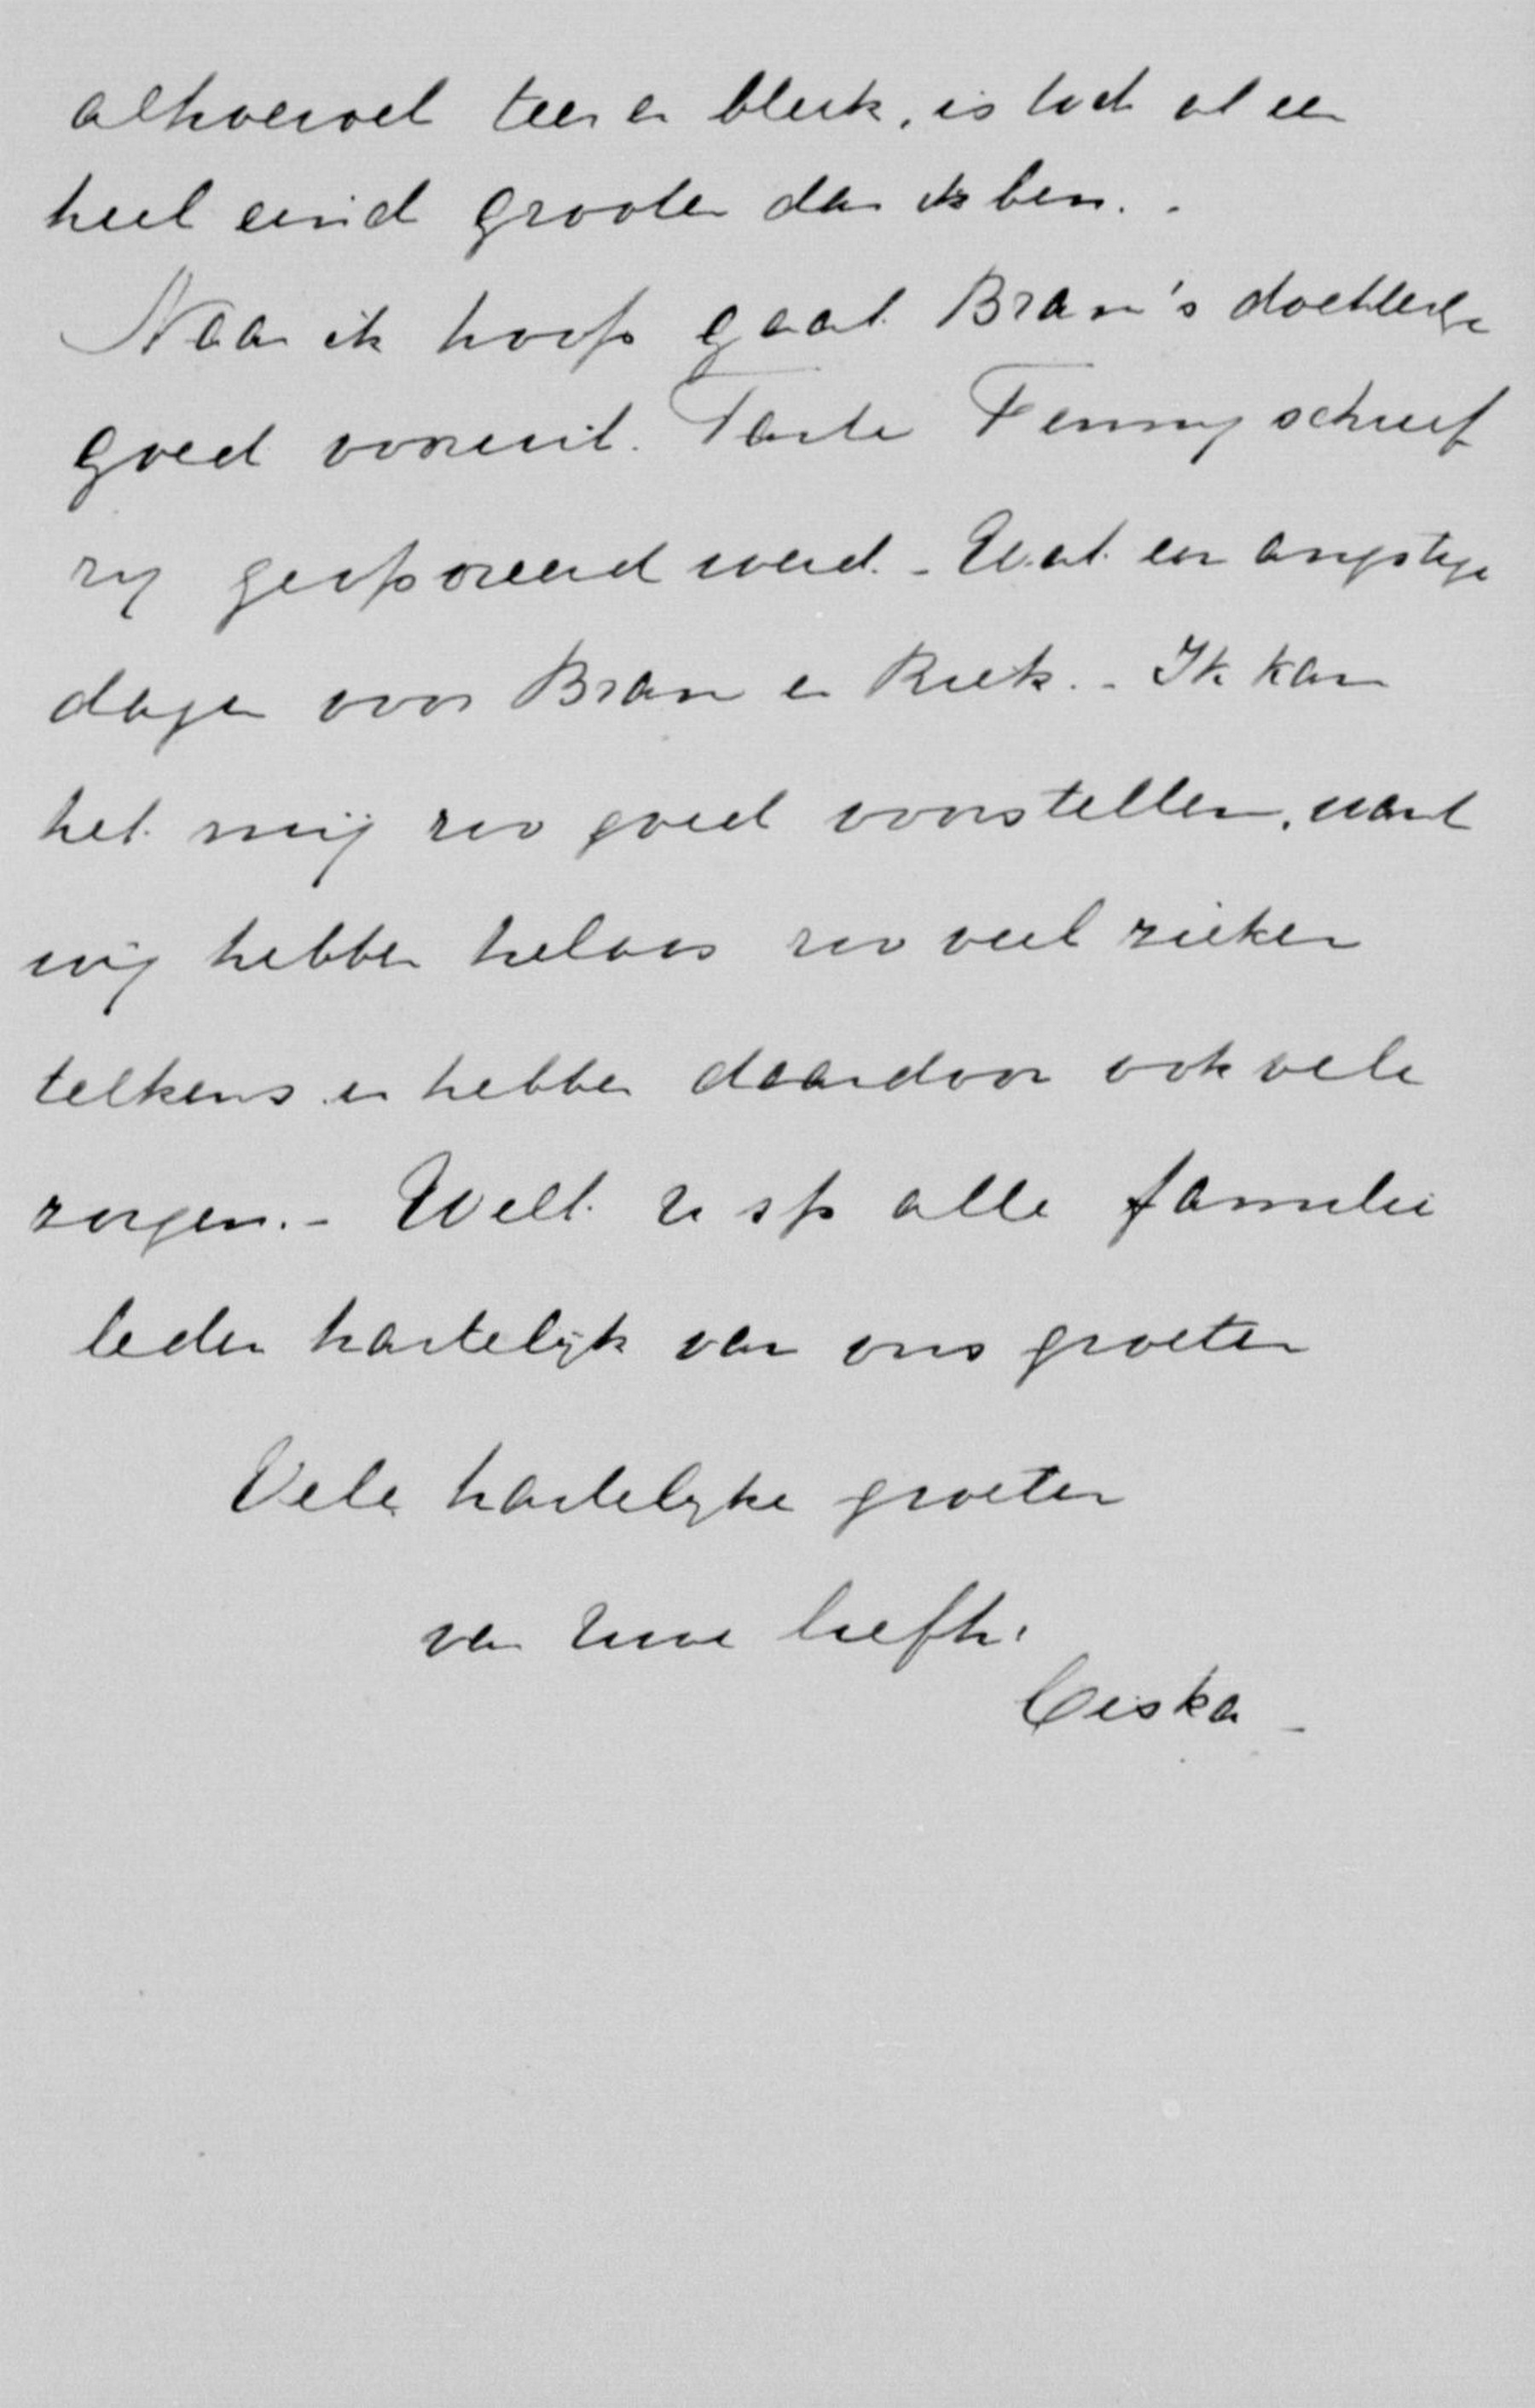 alhoewel teer en bleek, is toch al een
heel eind grooter dan ik ben. -
Naar ik hoop gaat Bram's dochtertje
goed vooruit. Tante Fenny schreef
zij geopereerd werd. - Wat een angstige
dagen voor Bram en Riek. - Ik kan
het mij zoo goed voorstellen, want
wij hebben helaas zoo veel zieken
telkens en hebben daardoor ook vele
zorgen. - Wilt U sp alle familie
leden hartelijk van ons groeten
Vele hartelijke groeten
van Uwe liefh.
Ciska -